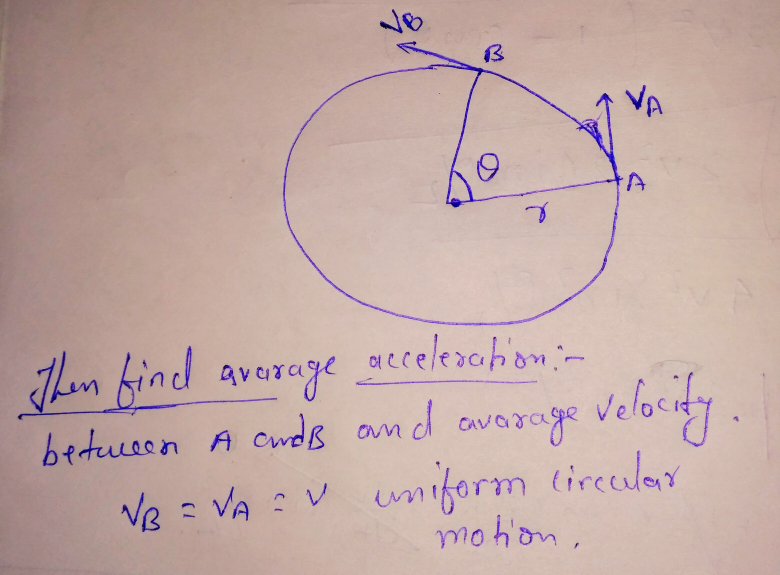 VB
B
VA
θ
A
r
Then find avarage acceleration:-
between A and B and avarage velocity.
VB = VA = V uniform circular
motion.